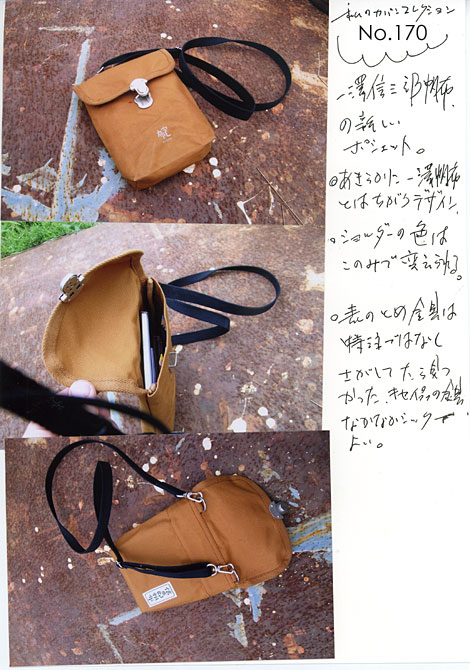 私のカバンコレクション
No.170
一澤信三郎帆布
の新しい
ポシェット。
◎あきらかに一澤帆布
とはちがうデザイン。
○ショルダーの色は
このみで変えられる。
○表のとめ金具は
特注ではなく
さがしてたら見つ
かった、既成の金具
なかなかシックで
よい。